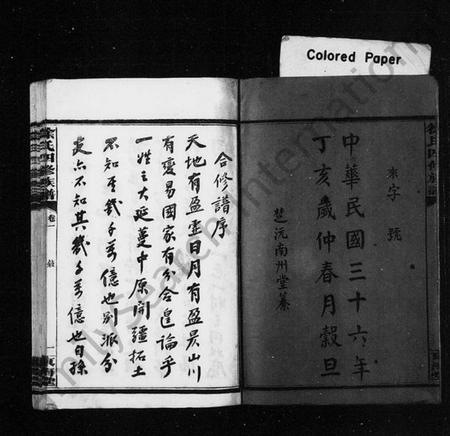 Colored Paper
來字 號
中華民國三十六年
丁亥歲仲春月穀旦
楚沅南州堂纂
合修譜序
天地有盈虛日月有盈昃山川
有變易國家有分合遑論乎
一姓之大延蔓中原開疆拓土
不知其幾千萬億也別派分
支亦不知其幾千萬億也自孫
徐氏四修族譜
卷一